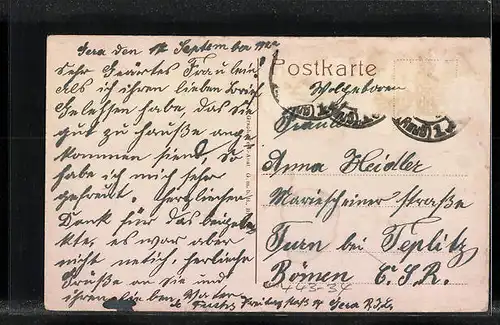 Gera den 12 September
Sehr Geärtes Fraulein!
Als ich ihren lieben Brief
Gelehsen habe, das sie
gut zu hauße ange
kommen siend, So
habe ich mich sehr
gefreut. Herzliechen
Dank für das beigele
kte, es war aber
nicht netich, herliche
Grüße an Sie und
ihren lieben Vater
Fuchs Gera
Postkarte
Wolgeboren
Fräulein
Anna Heidler
Mariescheiner straße
Turn bei Teplitz
Bömen C.S.R.
443-34